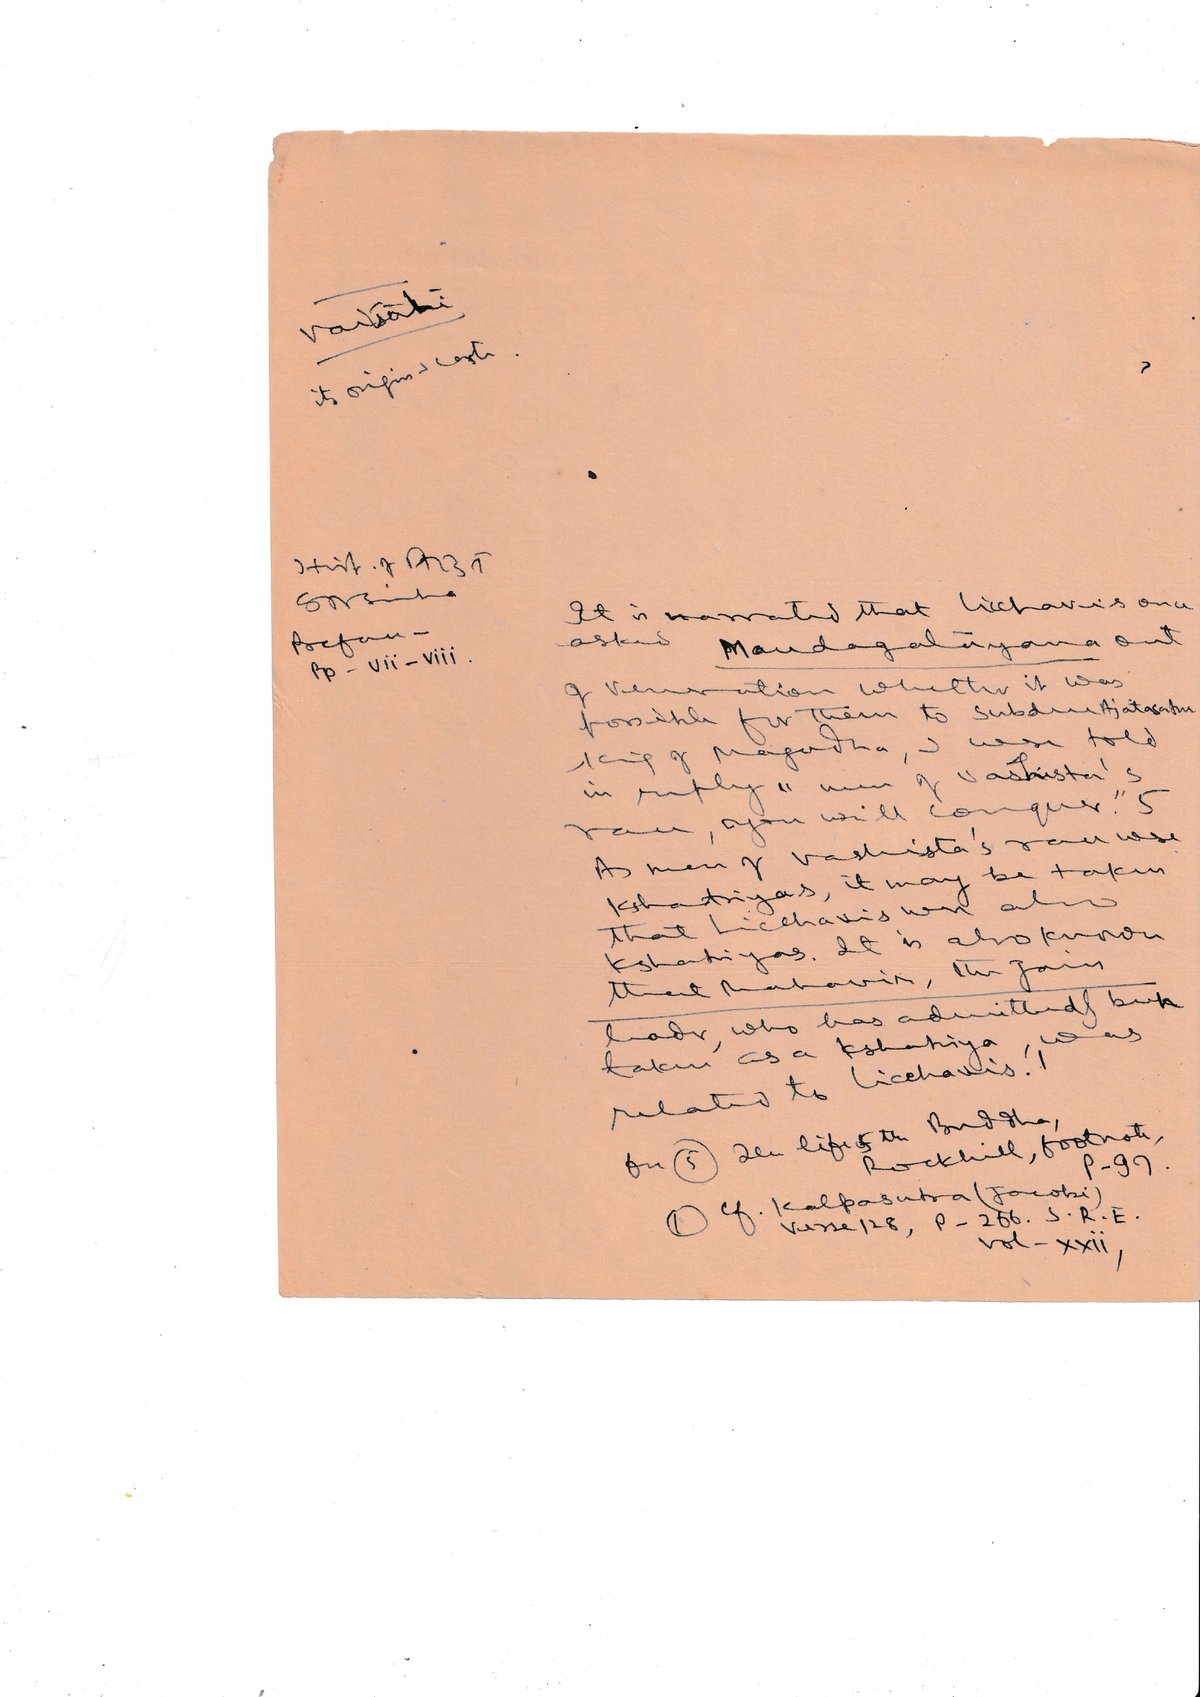 Vaiśālī
its origin & caste.
Hist. of
Preface -
Pp - vii - viii.
It is narrated that Licchavis once
asked Maudagalāyana out
of veneration whether it was
possible for them to subdue Ajatasatru
King of Magadha, & were told
in reply " men of Vashista's
race, you will conquer." 5
As men of Vashista's race were
Kshatriyas, it may be taken
that Licchavis were also
Kshatriyas. It is also known
that Mahavir, the Jain
leader, who has admittedly been
taken as a Kshatriya, was
related to Licchavis. 1
for (5) See life of the Buddha,
Rockhill, footnote,
P-97.
(1) Cf. Kalpasutra (Jacobi)
Verse 128, P - 266. S.B.E.
Vol - xxii,